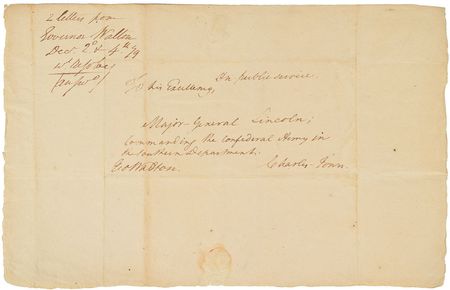 2 letters from
Governor Walton
Decr. 2d & 4th 79
In public service.
To his Excellency,
Major-General Lincoln;
Commanding the Confederal Army in
the Southern Department.
Geo Walton.
Charles Town.